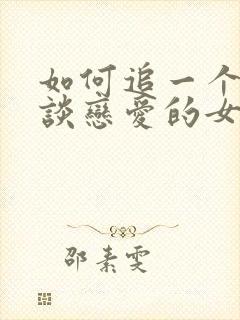 如何追一个
談戀愛的女
邵素雯